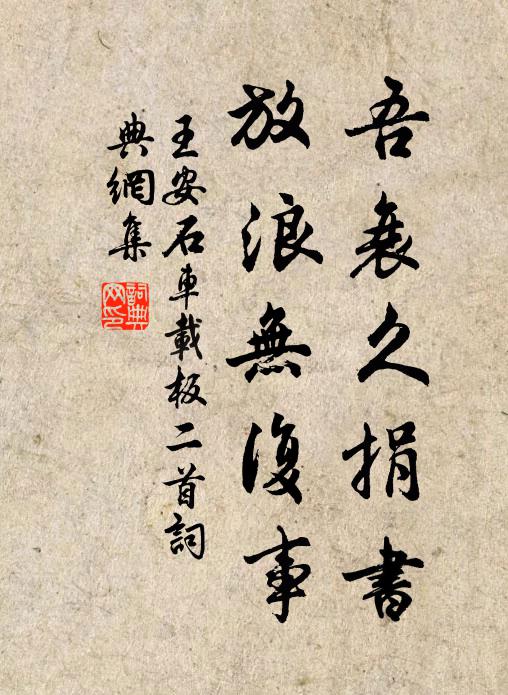 吾衰久捐書
放浪無復事
王安石車載板二首詞
典網集
詞典
網印